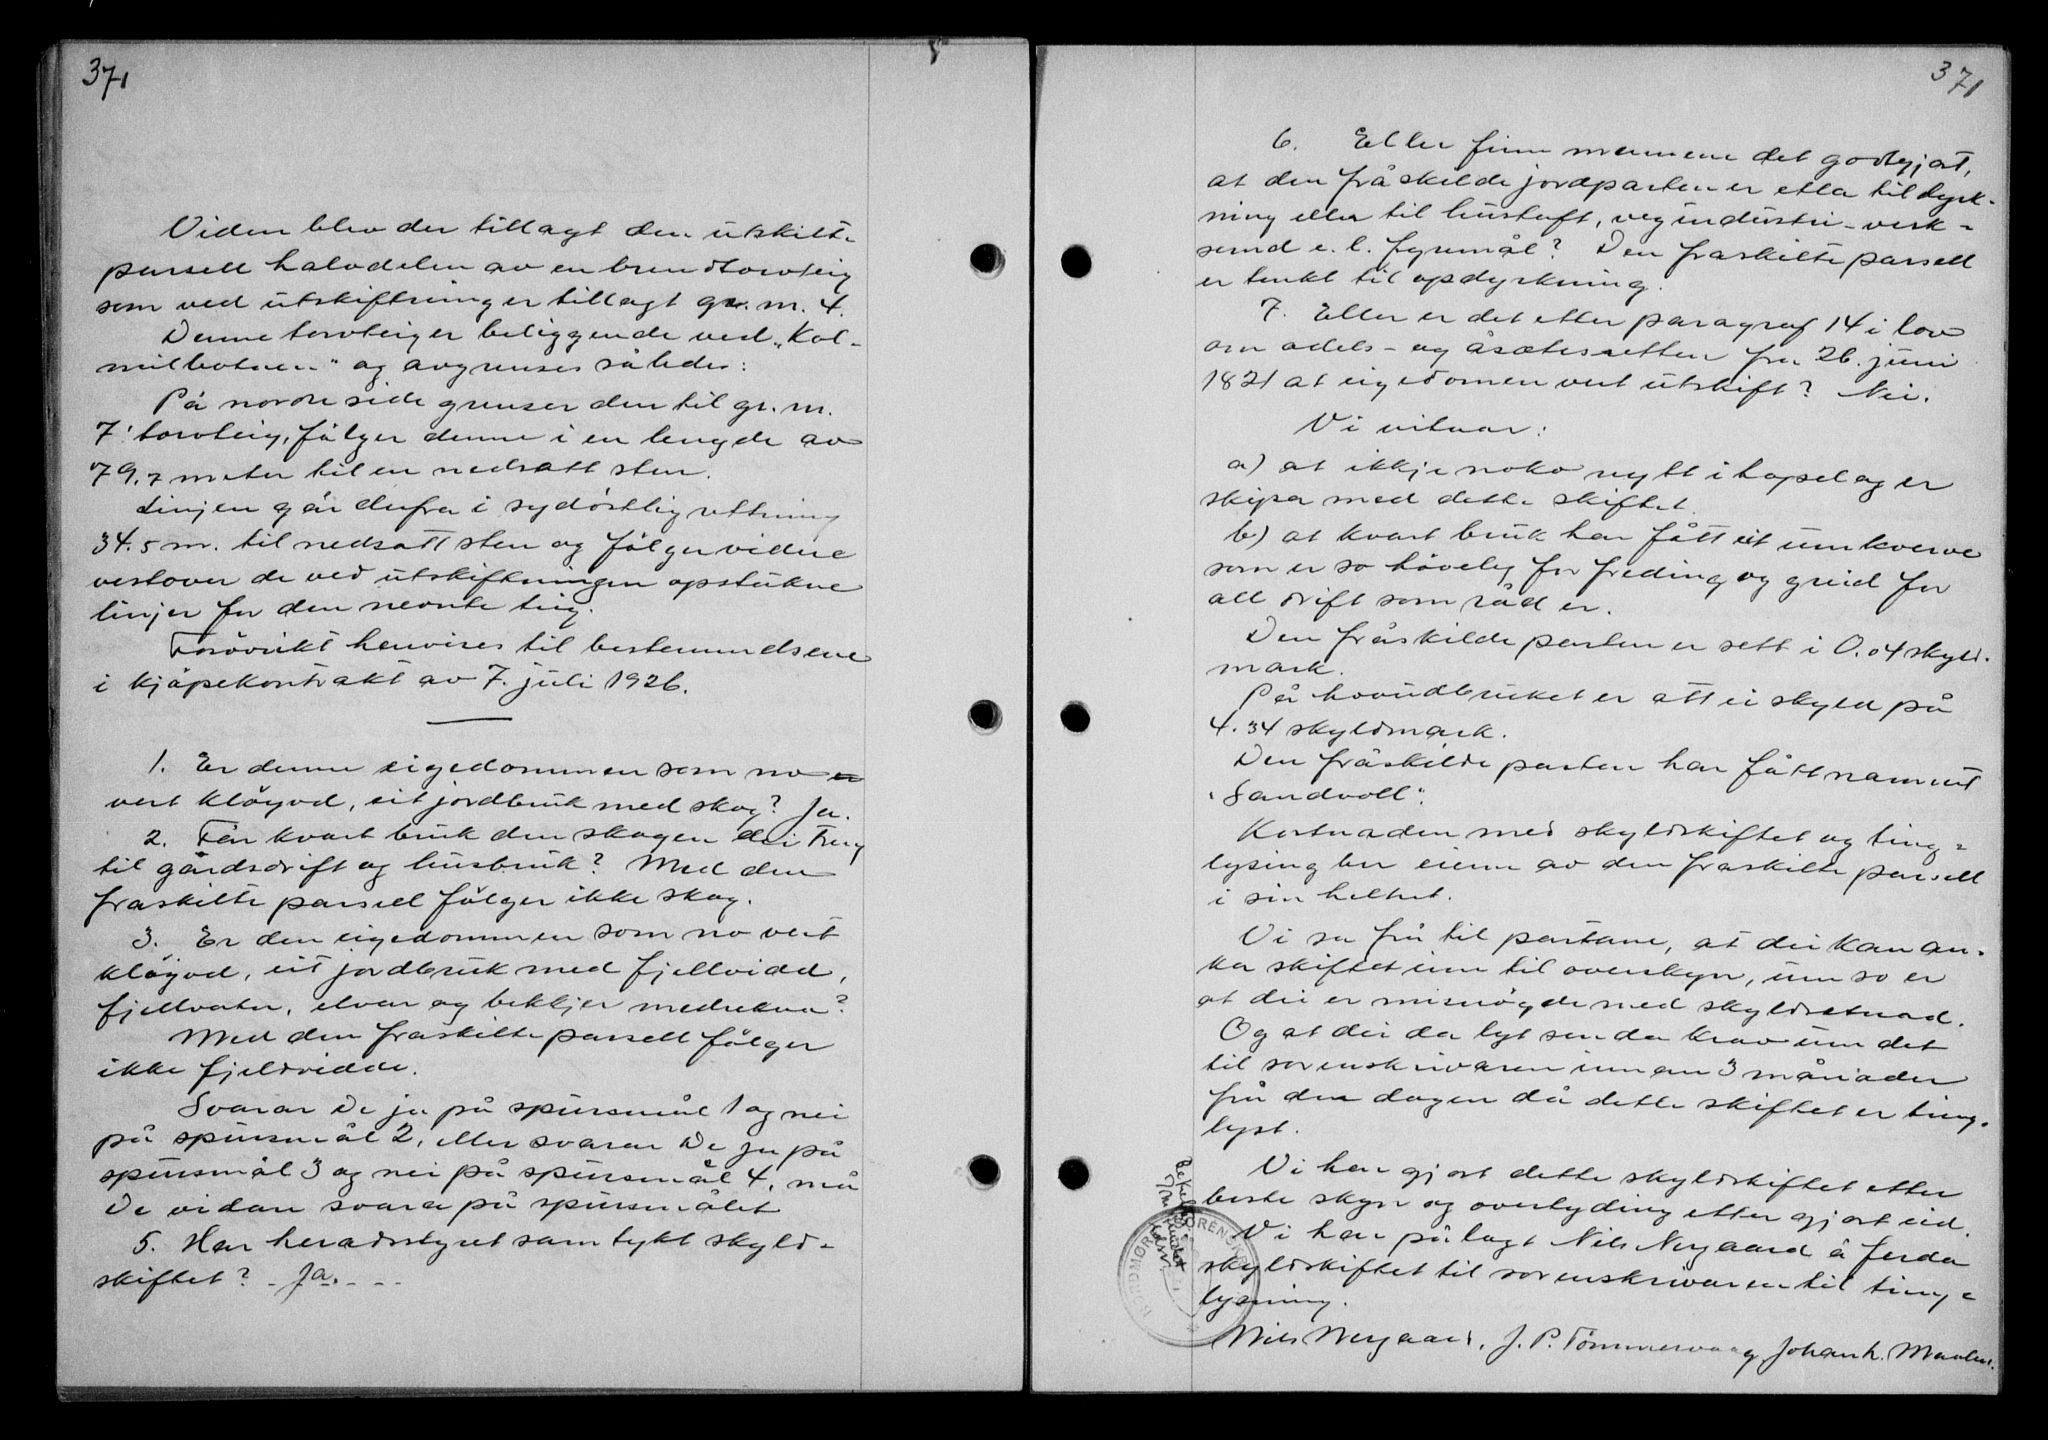 371
Viden blev der tillagt den utskilte
parsell halvdelen av en brendtorvteig
som ved utskiftning er tillagt gr. m. 4.
Denne torvteig er beliggende ved „Kol-
milbotnen" og avgrenses således:
På nordre side grenser den til gr. m.
7' torvteig, fålger denne i en lengde av
79,7 meter til en nedsatt sten.
Linjen går derfra i sydøstlig rettning
34.5 m. til nedsatt sten og fölger videre
vestover de ved utskiftningen opstukne
linjer for den nevnte teig.
Forövrikt henvises til bestemmelsene
i kjöpekontrakt av 7. juli 1926.
1. Er denne eigedommen som no
vert klöyvd, eit jordbruk med skog? Ja.
2. Får kvart bruk den skogen dei treng
til gårdsdrift og husbruk? Med den
fraskilte parsell fölger ikke skog.
3. Er den eigedommen som no vert
klöyvd, eit jordbruk med fjellvidd,
fjellvatn, elvar og bekkjer medrekna?
Med den fraskilte parsell fölger
ikke fjeldvidde.
Svarar De ja på spursmål 1 og nei
på spursmål 2, eller svarar De ja på
spursmål 3 og nei på spursmål 4, må
De vidare svara på spursmålet
5. Har heradsstyret samtykt skyld-
skiftet? - Ja. - - -
371
6. Eller finn mennene det godtgjort,
at den fråskilde jordparten er etla til dyrk-
ning eller til hustuft, veg industri-verk-
semd e. l. fyremål? Den fraskilte parsell
er tenkt til opdyrkning.
7. Eller er det etter paragraf 14 i lov
om odels- og åsætesretten fra 26. juni
1821 at eigedomen vert utskift? Nei.
Vi vitnar:
a) at ikkje noko nytt i hopelag er
skipa med dette skiftet.
b) at kvart bruk har fått eit umkverve
som er so hövelig for freding og greid for
all drift som råd er.
Den fråskilde parten er sett i 0.04 skyld-
mark.
På hovudbruket er att ei skyld på
4.34 skyldmark.
Den fråskilde parten har fått namnet
"Sandvoll".
Kostnaden med skyldskiftet og ting-
lysing ber eieren av den fraskilte parsell
i sin helhet.
Vi sa frå til partane, at dei kan an-
ka skiftet inn til overskyn, um so er
at dei er misnögde med skyldsetnad.
Og at dei da lyt senda krav um det
til sorenskrivaren innan 3 månader
frå den dagen då dette skiftet er ting-
lyst.
Vi har gjort dette skyldskiftet etter
beste skyn og overtyding etter gjort eid.
Vi har pålagt Nils Nergaard å ferda
skyldskiftet til sorenskrivaren til ting-
lysning.
Nils Nergaard, J. P. Tömmervaag Johan L.
NORDMØRE SORENSKR